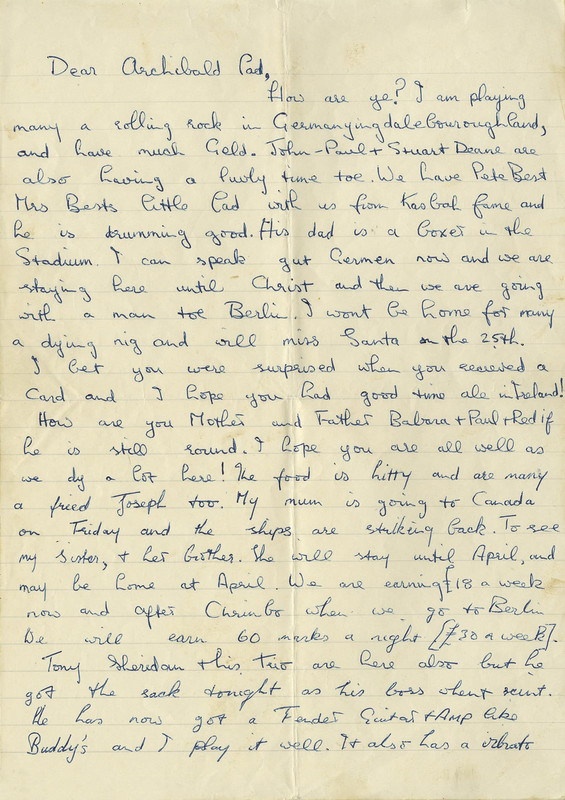 Dear Archibald Pad,
How are ye? I am playing
many a rolling rock in Germanyingdalebouroughland,
and have much Geld. John-Paul + Stuart Deane are
also having a luvly time toe. We have Pete Best
Mrs Bests little Lad with us from Kasbah fame and
he is drumming good. His dad is a boxer in the
Stadium. I can speak gut Germen now and we are
staying here until Christ and then we are going
with a man toe Berlin. I wont be home for many
a dying nig and will miss Santa on the 25th.
I bet you were surprised when you recieved a
Card and I hope you had good time ale in Ireland!
How are you Mother and Father Babara + Paul + Red if
he is still round. I hope you are all well as
we dy a lot here! The food is hitty and are many
a fried Joseph too. My mum is going to Canada
on Friday and the ships are striking back. To see
my Sister, + her brother. She will stay until April, and
may be home at April. We are earning £18 a week
now and after Chrimbo when we go to Berlin
De will earn 60 marks a night [£30 a week].
Tony Sheridan + his Trio are here also but he
got the sack tonight as his boss whent scint.
He has now got a Fender Guitar + Amp like
Buddy's and I play it well. It also has a vibrato